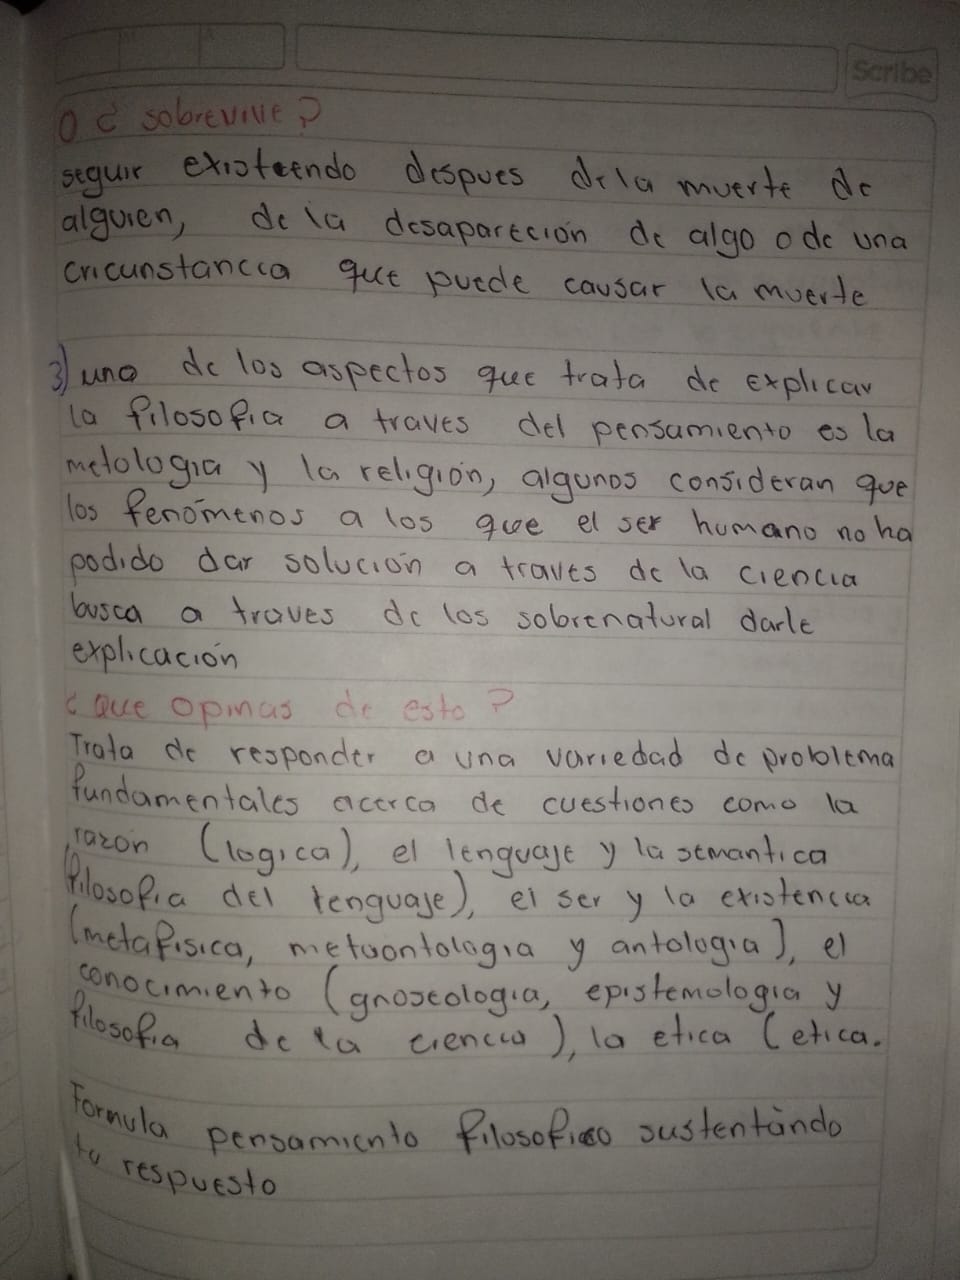 Scribe
O ¿ sobrevive?
seguir existeendo despues de la muerte de
alguien, de la desaparección de algo o de una
cricunstancia que puede causar la muerte
3) uno de los aspectos que trata de explicar
la filosofia a traves del pensamiento es la
metologia y la religión, algunos consideran que
los fenómenos a los que el ser humano no ha
podido dar solución a traves de la ciencia
busca a traves de los sobrenatural darle
explicación
¿ que opinas de esto ?
Trata de responder a una variedad de problema
fundamentales acerca de cuestiones como la
razon (logica), el lenguaje y la semantica
(filosofia del lenguaje), el ser y la existencia
(metafisica, metaontologia y antologia), el
conocimiento (gnoseologia, epistemologia y
filosofia de la ciencia), la etica (etica.
Formula pensamiento filosofico sustentando
tu respuesto